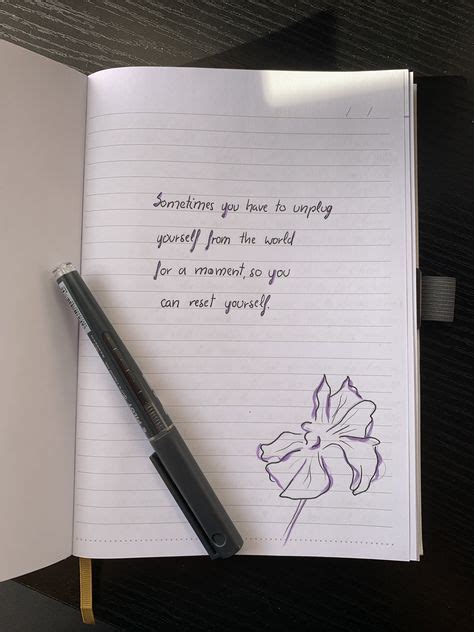 Sometimes you have to unplug
yourself from the world
for a moment, so you
can reset yourself.